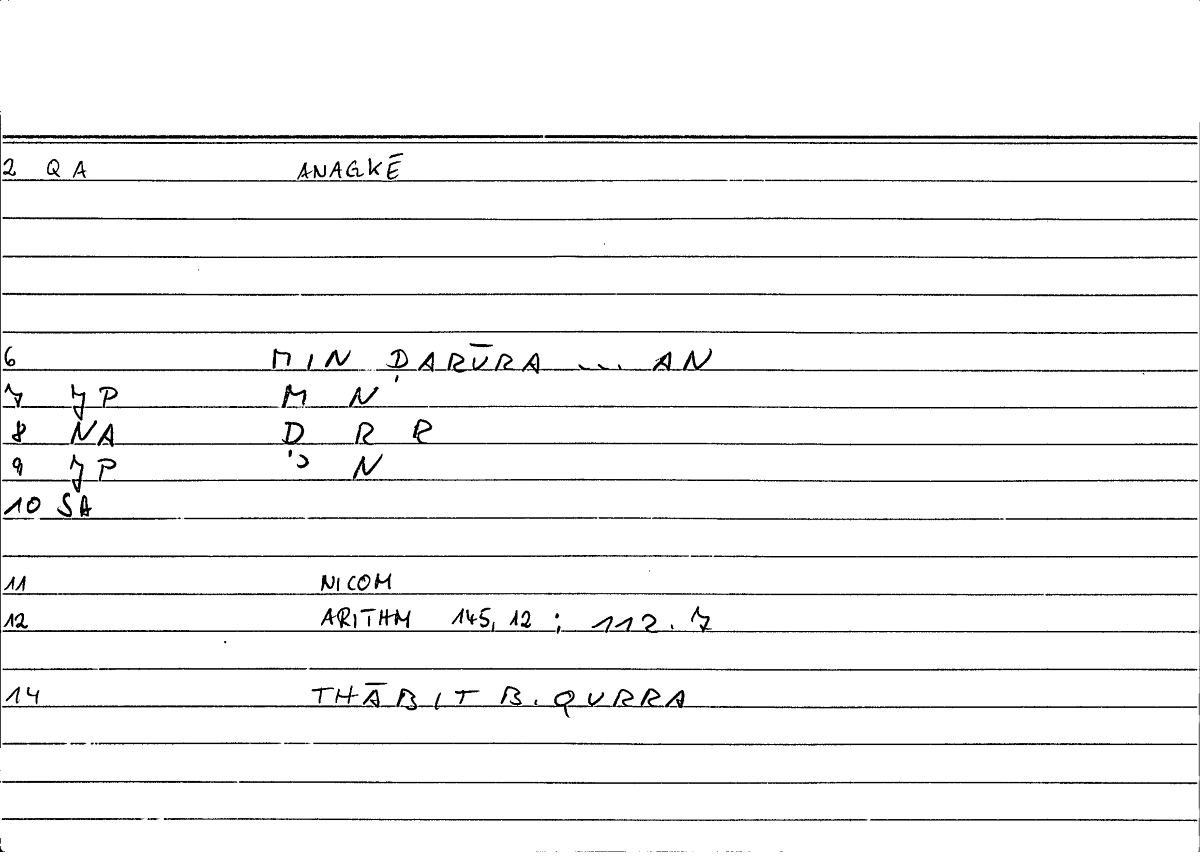 2 QA ANAGKĒ
6 MIN ḌARŪRA ... AN
7 JP M N
8 NA Ḍ R R
9 JP ʾ N
10 SA
11 NICOM
12 ARITHM 145,12 ; 112.7
14 THĀBIT B. QURRA